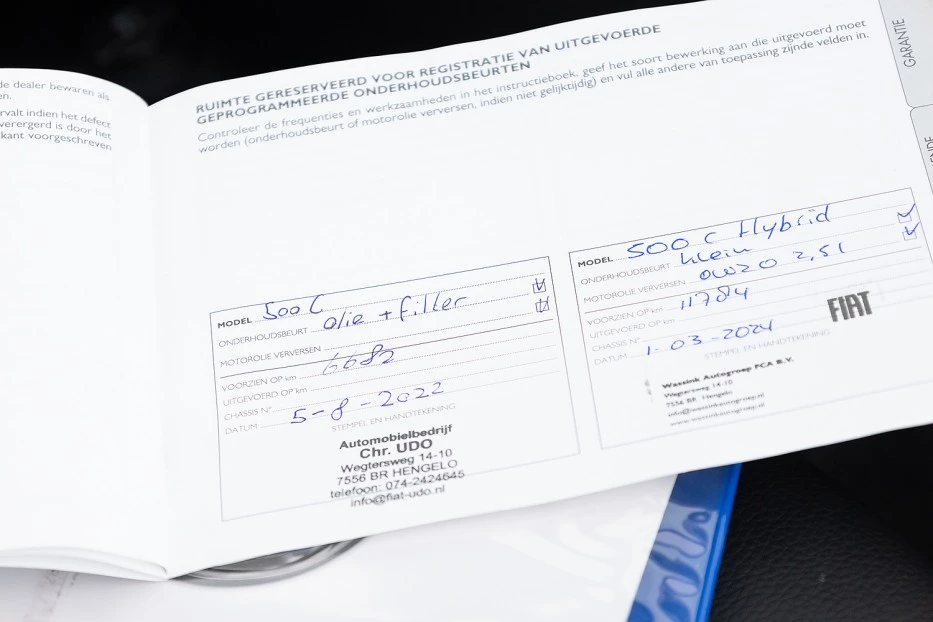 de dealer bewaren als
en.
rvalt indien het defect
verergerd is door het
kant voorgeschreven
RUIMTE GERESERVEERD VOOR REGISTRATIE VAN UITGEVOERDE
GEPROGRAMMEERDE ONDERHOUDSBEURTEN
Controleer de frequenties en werkzaamheden in het instructieboek, geef het soort bewerking aan die uitgevoerd moet
worden (onderhoudsbeurt of motorolie verversen, indien niet gelijktijdig) en vul alle andere van toepassing zijnde velden in.
GARANTIE
MODEL 500 C
ONDERHOUDSBEURT olie + filter
MOTOROLIE VERVERSEN
VOORZIEN OP km 6682
UITGEVOERD OP km
CHASSIS N°
DATUM 5-8-2022
STEMPEL EN HANDTEKENING
Automobielbedrijf
Chr. UDO
Wegtersweg 14-10
7556 BR HENGELO
telefoon: 074-2424645
info@fiat-udo.nl
MODEL 500 C Hybrid
ONDERHOUDSBEURT klein
MOTOROLIE VERVERSEN 0W20 2,5l
VOORZIEN OP km 11784
UITGEVOERD OP km
CHASSIS N°
DATUM 1-03-2024
STEMPEL EN HANDTEKENING
FIAT
Wassink Autogroep FCA B.V.
Wegtersweg 14-10
7556 BR Hengelo
info@wassinkautogroep.nl
www.wassinkautogroep.nl